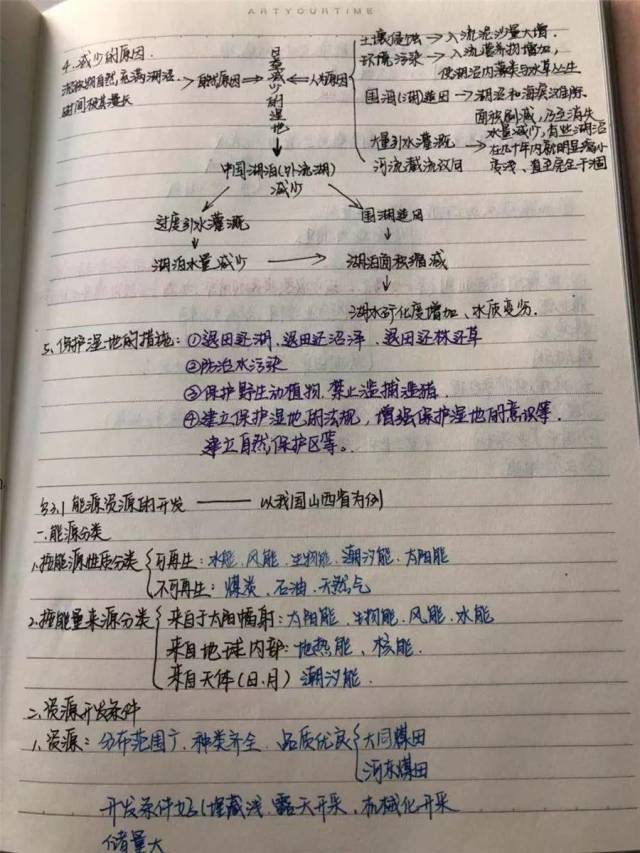 ARTYOURTIME
4. 减少的原因
泥沙淤积自然充满湖沼 → 自然原因 → 日益减少的湿地 ← 人为原因
时间极其漫长
土壤侵蚀 → 入流泥沙量大增
环境污染 → 入流营养物增加,
使湖沼内藻类与水草丛生
围海(湖)造田 → 湖沼和海滨滩涂
面积剧减,乃至消失
大量引水灌溉
河流截流改道
水量减少,有些湖沼
在几十年内就明显缩小
变浅、直至完全干涸
中国湖泊(外流湖)
减少
过度引水灌溉 围湖造田
湖泊水量减少 → 湖泊面积缩减
湖水矿化度增加、水质变劣.
5. 保护湿地的措施: ①退田还湖、退田还沼泽、退田还林还草
②防治水污染
③保护野生动植物,禁止滥捕滥猎.
④建立保护湿地的法规,增强保护湿地的意识等.
建立自然保护区等。
§3.1 能源资源的开发 —— 以我国山西省为例
一.能源分类
1.按能源性质分类 可再生:水能、风能、生物能、潮汐能、太阳能
不可再生:煤炭、石油、天然气
2.按能量来源分类 来自于太阳辐射:太阳能、生物能、风能、水能
来自地球内部:地热能、核能.
来自天体(日、月)潮汐能.
二、资源开发条件
1、资源:分布范围广、种类齐全、品质优良 大同煤田
河东煤田
开发条件好(埋藏浅、露天开采、机械化开采
储量大